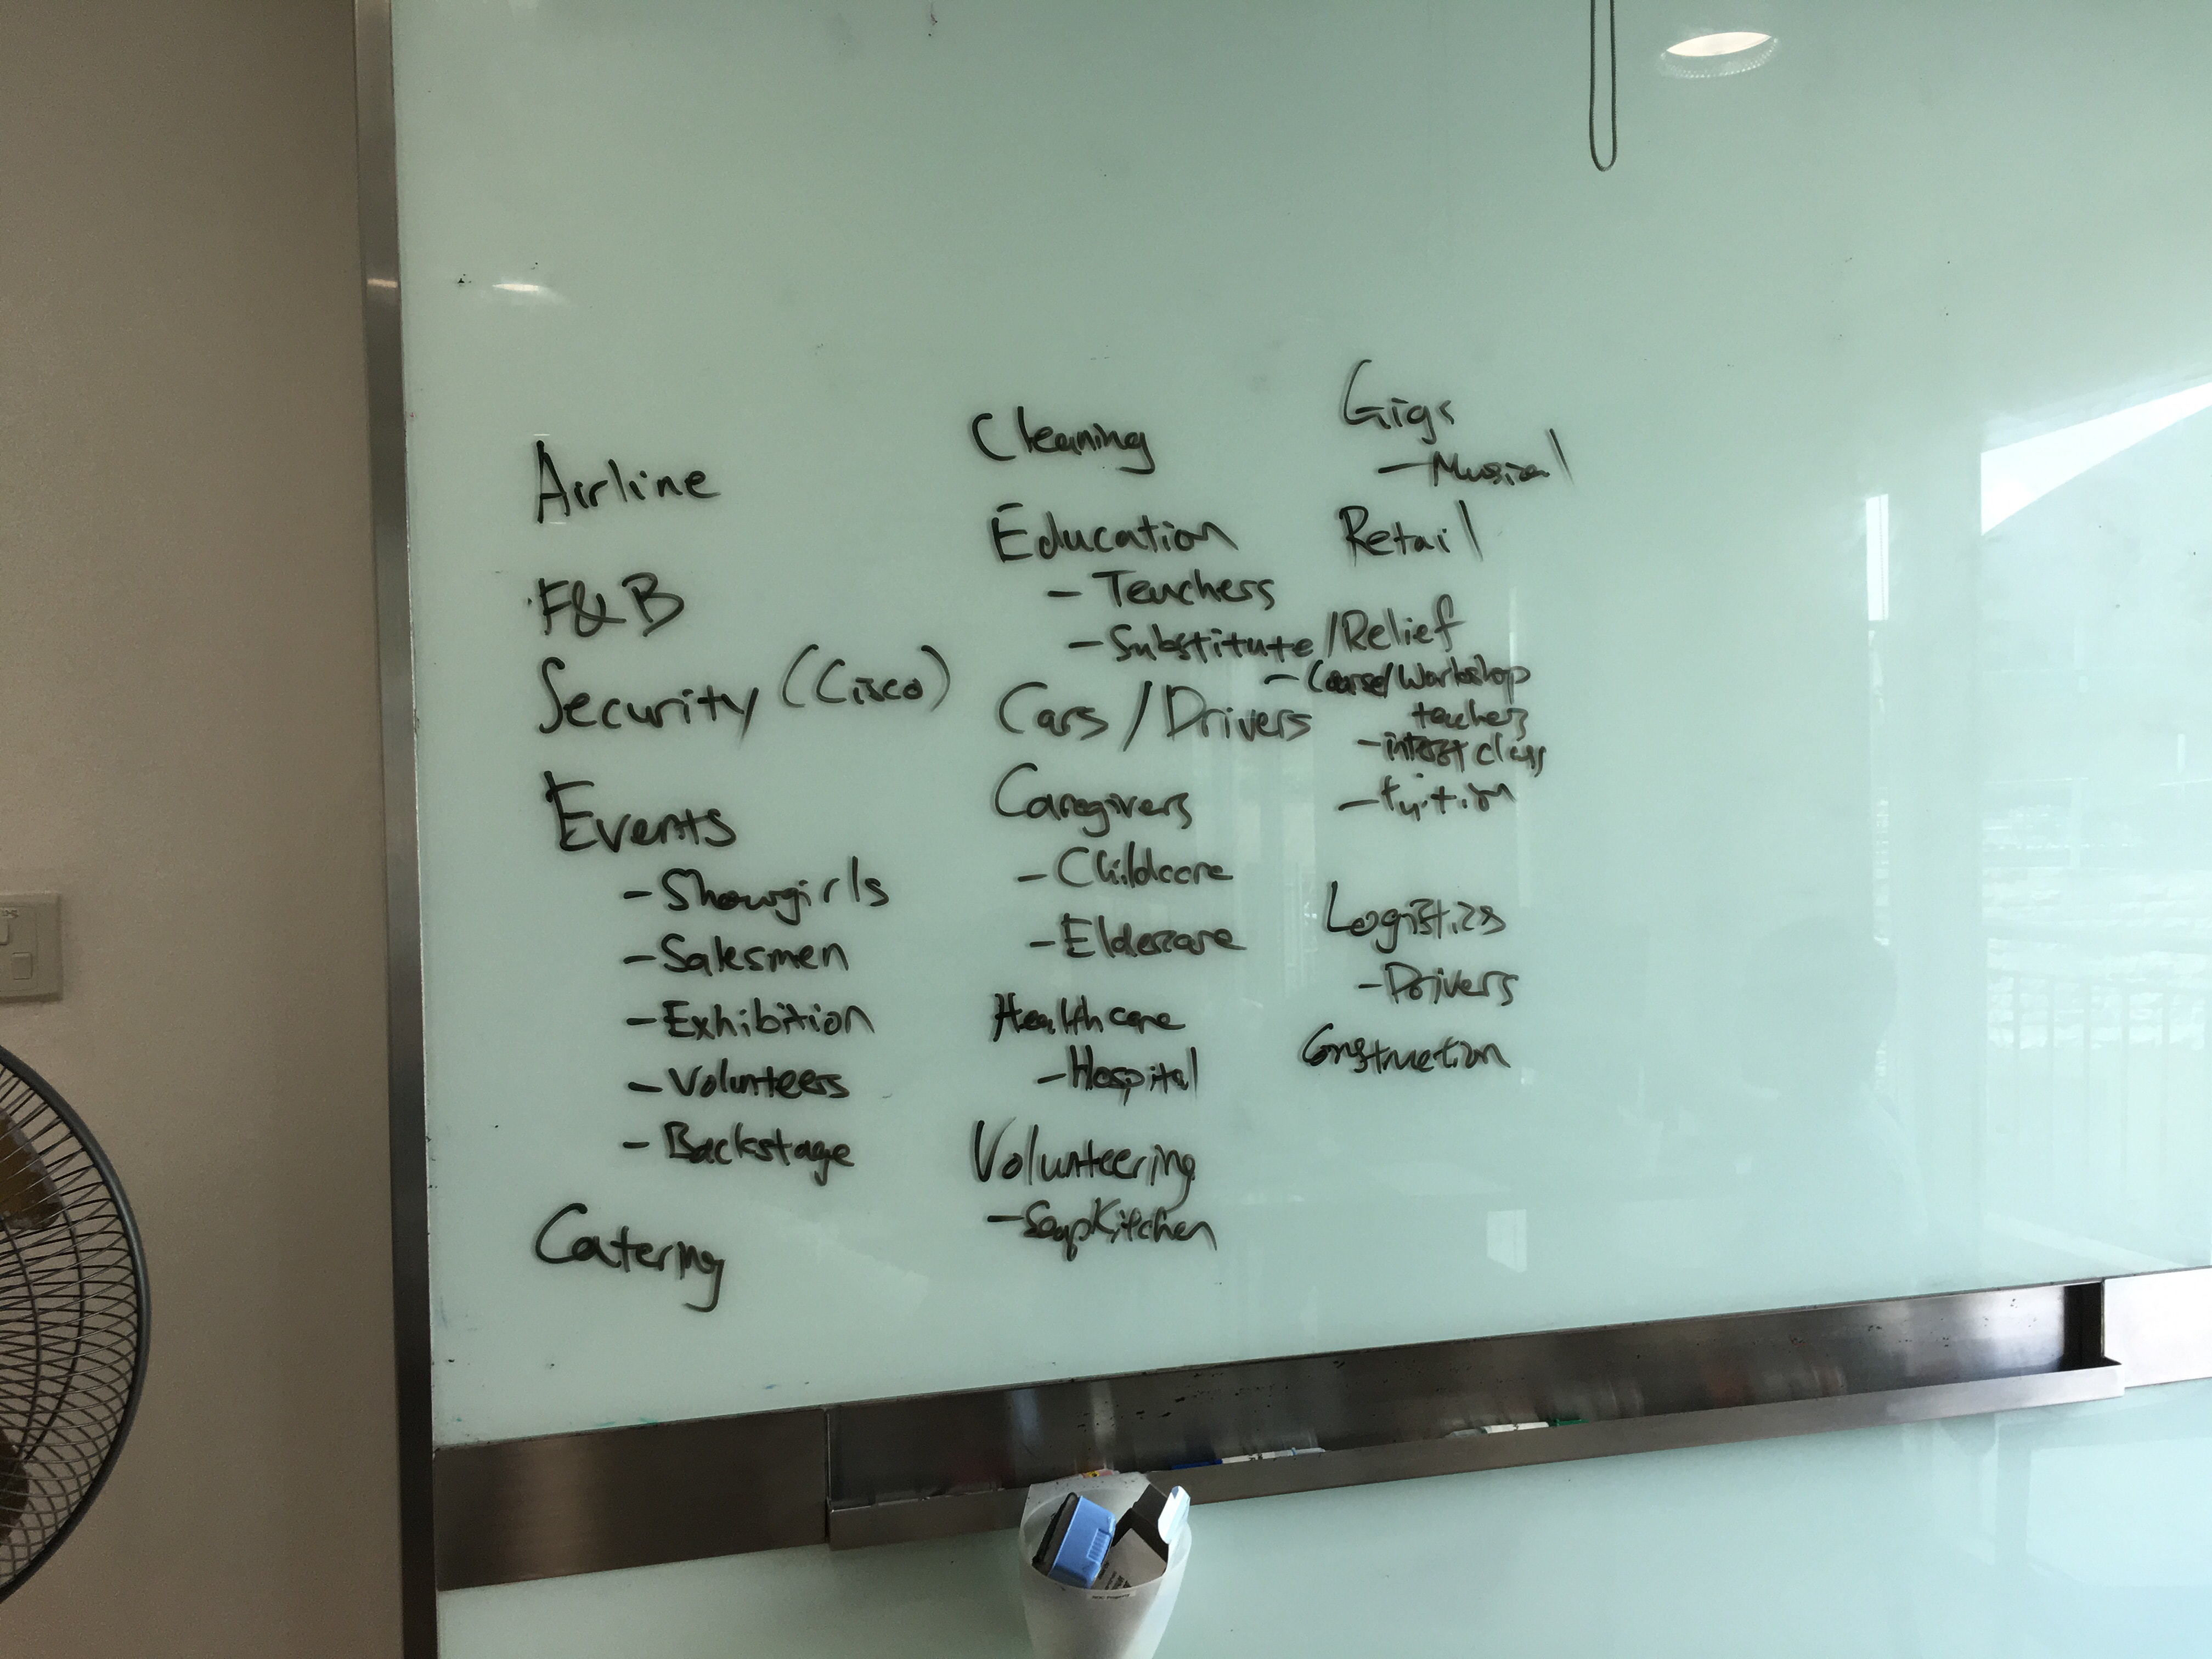 Airline
F&B
Security (Cisco)
Events
- Showgirls
- Salesmen
- Exhibition
- Volunteers
- Backstage
Catering
Cleaning
Education
- Teachers
- Substitute/Relief
- Course/Workshop
teachers
- interest class
- tuition
Cars/Drivers
Caregivers
- Childcare
- Eldercare
Healthcare
- Hospital
Volunteering
- Soup Kitchen
Gigs
- Musical
Retail
Logistics
- Drivers
Construction